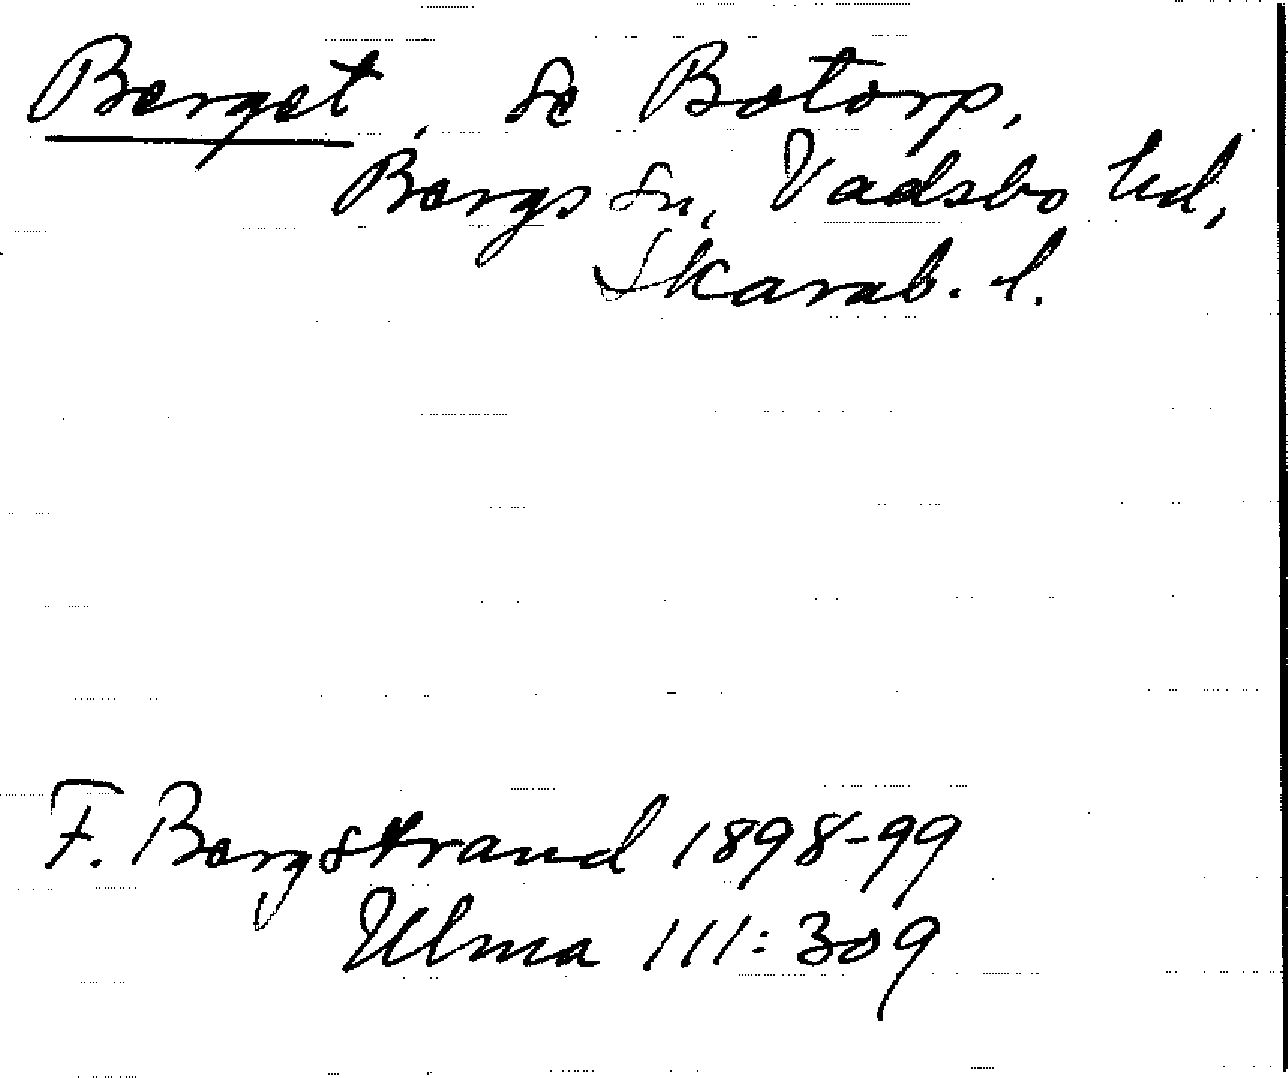 Berget, se Botorp,
Bergs sn, Vadsbo hd,
Skarab. l.
F. Bergstrand 1898-99
Ulma 111:309